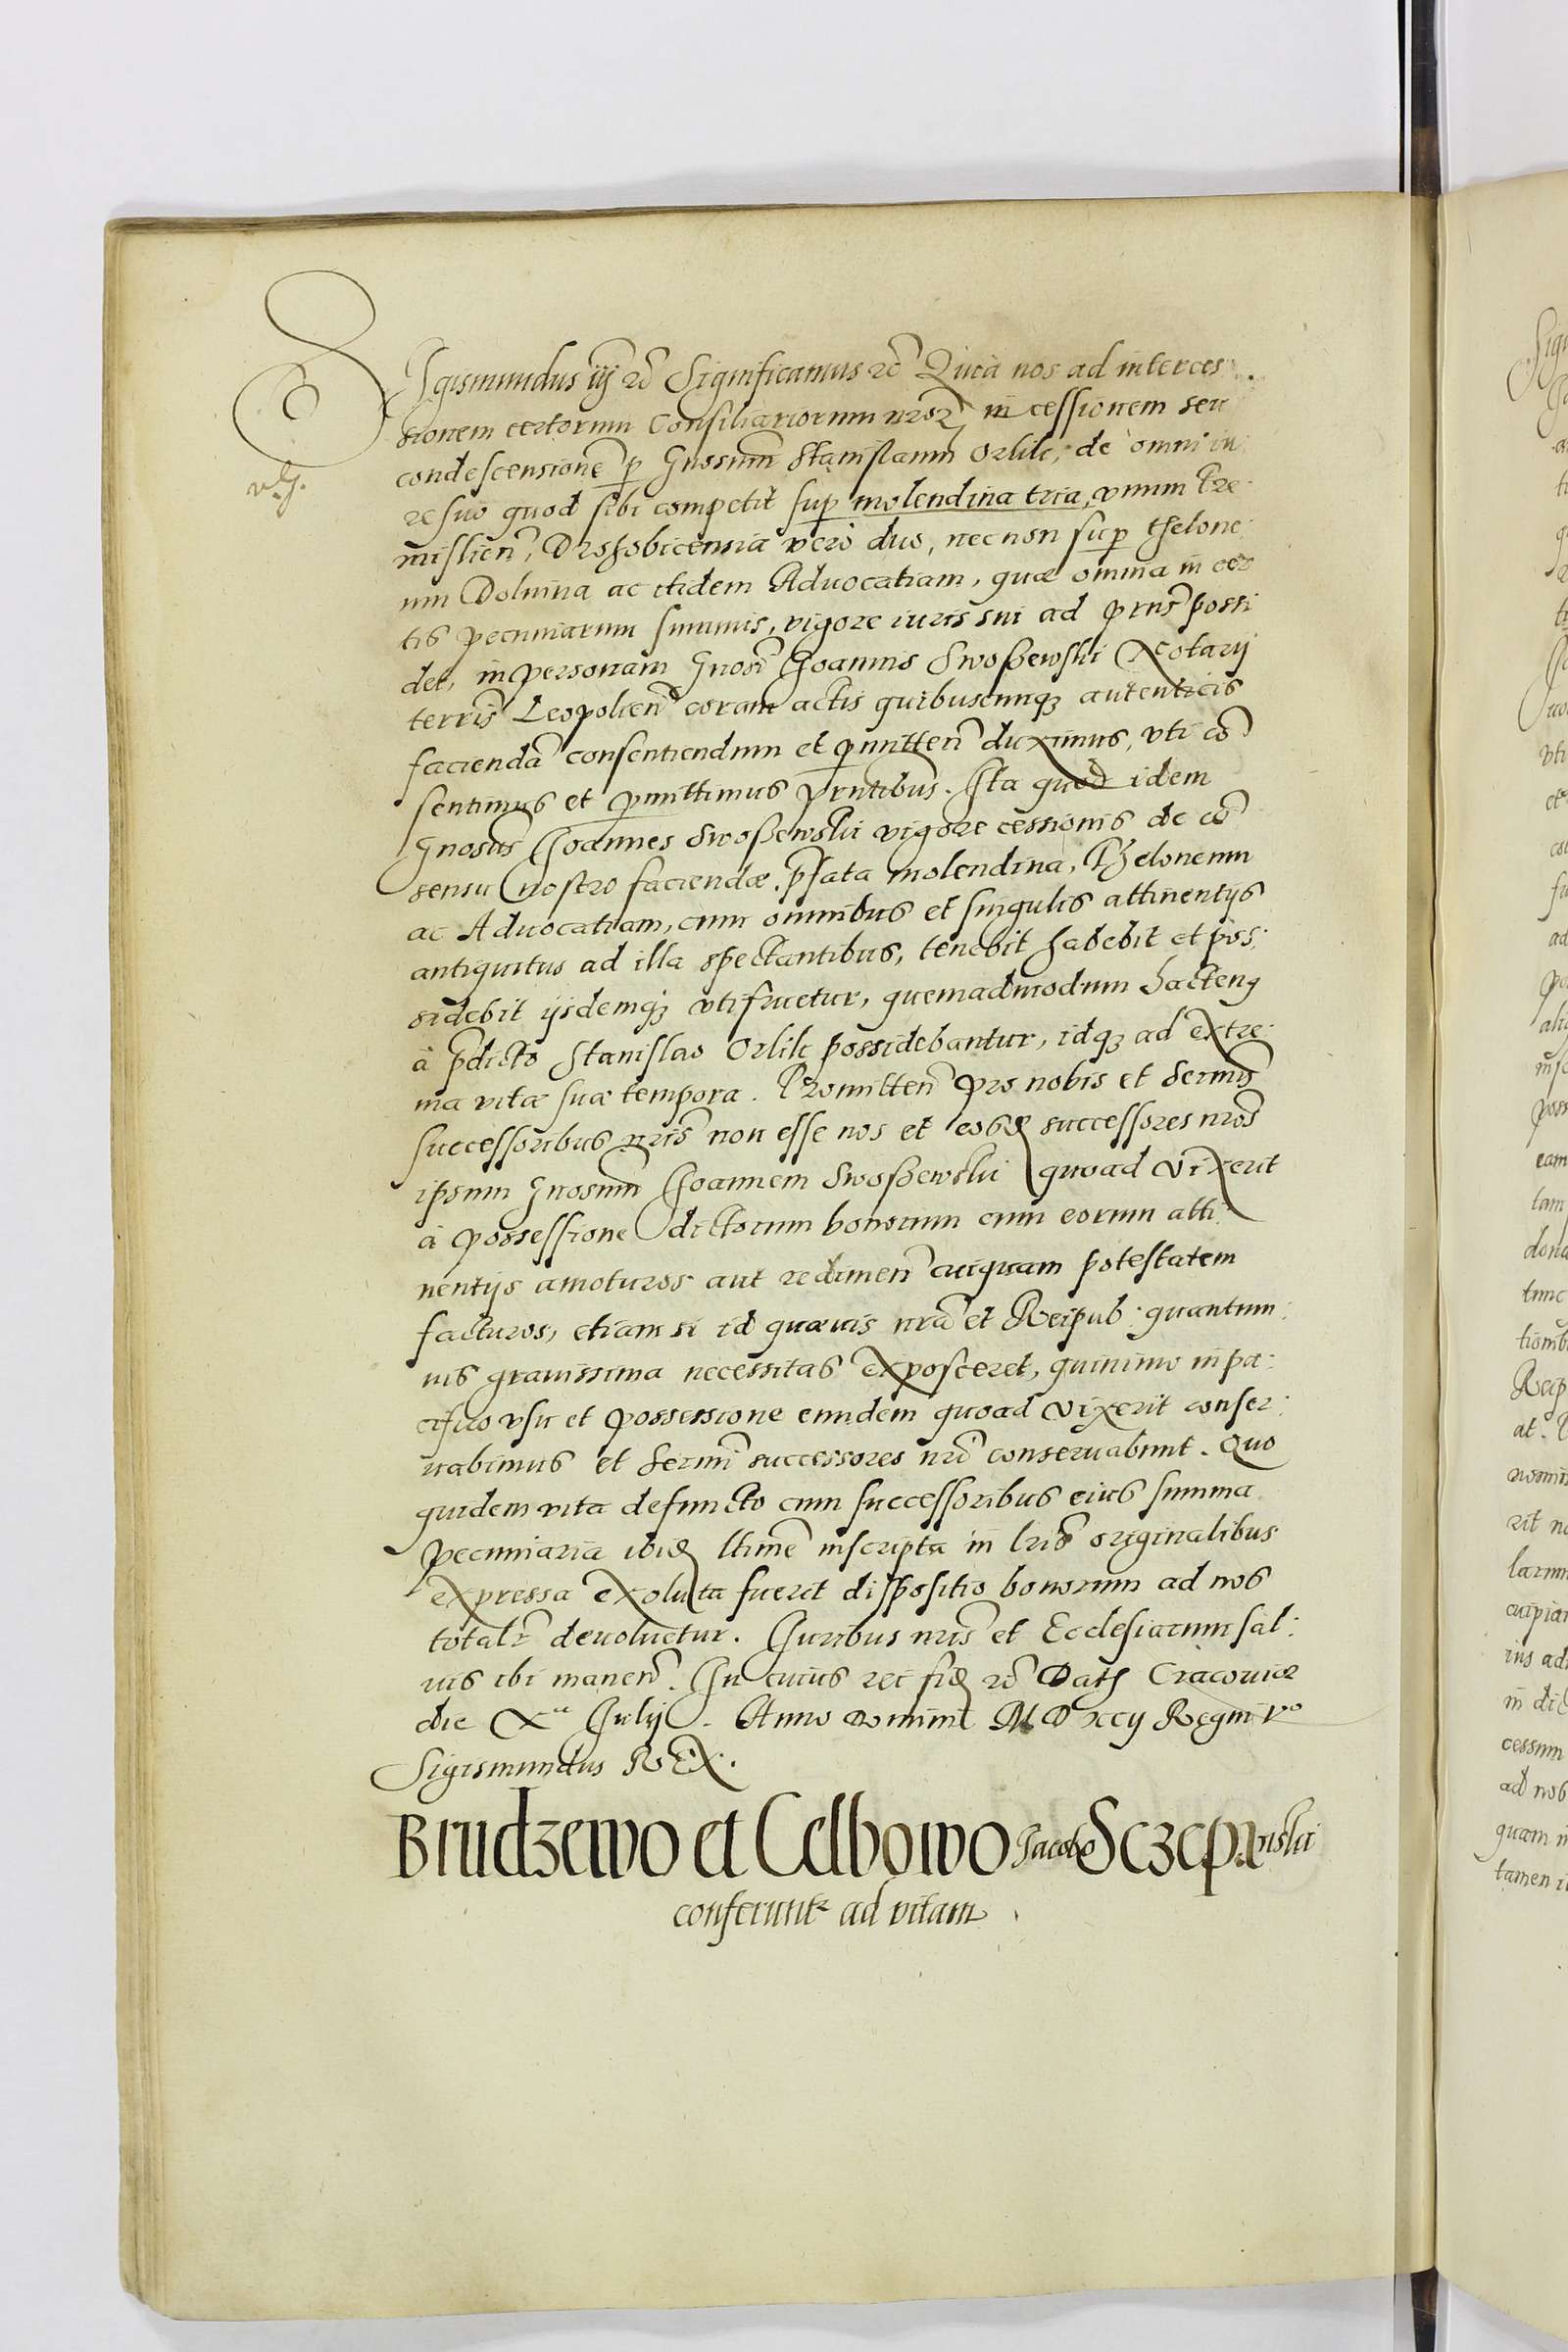 SIgismundus iij etc̃ Significamus etc̃ Quia nos ad interces
sionem certorum Consiliariorum nrorꝝ in cessionem seu
condescensionẽ ꝑ Gnosum̃ Stanislaum Orlik, de omni iu
re suo quod sibi competit suꝑ molendina tria, vnum Pre
mislien̄, Drohobicensia vero duo, nec non suꝑ thelone
um Dolnina ac itidem Aduocatiam, quæ omnia in cer
tis pecuniarum summis, vigore iuris sui ad prns̃ possi
det, in personam Gnosi Joannis Swoßewski Notarij
terris̃ Leopolien̄ coram actis quibuscunqȝ autenticis
faciendã consentiendum et ꝑmitten̄ duximus, vti cõ
sentimus et ꝑmittimus prntibus̃. Ita quod idem
Gnosus̃ Joannes Swoßewski vigore cessionis de cõ
sensu nostro faciendæ, p̃fata molendina, Theloneum
ac Aduocatiam, cum omnibus et singulis attinentijs
antiquitus ad illa spectantibus, tenebit habebit et pos:
sidebit ijsdemqȝ vtifruetur, quemadmodum hactenꝰ
à p̃dicto Stanislao Orlik possidebantur, idqȝ ad extre:
ma vitæ suæ tempora. Promitten̄ pro nobis et Sermis̃
successoribus nris̃ non esse nos et eosdē successores nros̃
ipsum Gnosum̃ Joannem Swoßewski quoad vixerit
à possessione dictorum bonorum cum eorum atti
nentijs amoturos aut redimen̄ cuiquam potestatem
facturos, etiam si id quæuis nrã et Reipub: quantum:
uis grauissima necessitas exposceret, quinimo in pa:
cifico vsu et possessione eundem quoad vixerit conser:
uabimus et Sermi successores nrĩ conseruabunt. Quo
quidem vita defuncto cum successoribus eius summa
pecuniaria ibidē ltimẽ inscripta in lris̃ originalibus
expressa exoluta fuerit dispositio bonorum ad nos
totalr̃ deuoluetur. Juribus nris̃ et Ecclesiarum sal:
uis ibi manen̄. In cuius rei fidē etc̃ Datꝭ Cracouiæ
die Xa Julij. Anno Domini MDxcij Regni Vo
Sigismundus REX.
Brudzewo et Celbowo Jacobo Sczepanski
conferuntr ad vitam